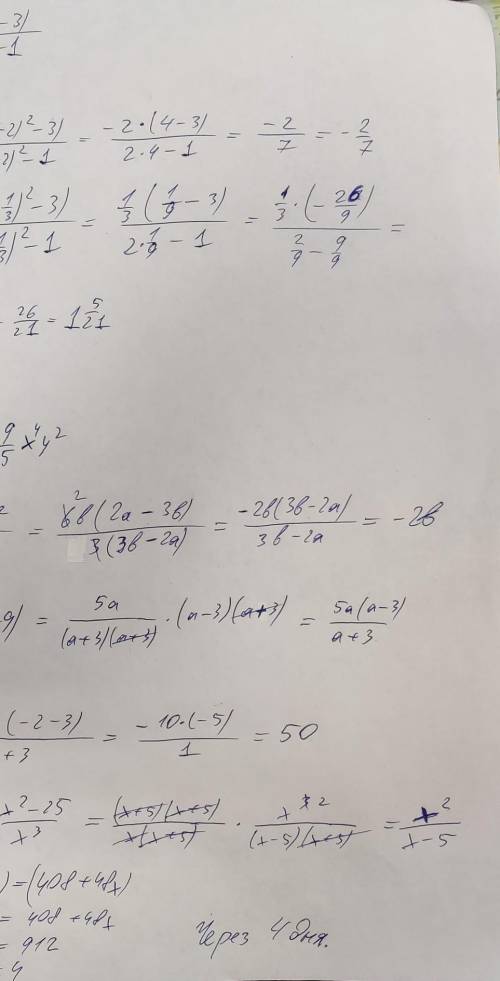 -3)/-1
-2)²-3)/2)²-1 = -2·(4-3)/2·4-1 = -2/7 = -2/7
1/3)²-3)/1/3)²-1 = 1/3(1/9-3)/2·1/9-1 = 1/3·(-26/9)/2/9-9/9 =
26/21 = 1 5/21
9/5 x⁴y²
2 = 6²b(2a-3b)/3(3b-2a) = -2b(3b-2a)/3b-2a = -2b
9) = 5a/(a+3)(a+3) · (a-3)(a+3) = 5a(a-3)/a+3
(-2-3)/+3 = -10·(-5)/1 = 50
x²-25/x³ = (x+5)(x+5)/x(x+5) · x³ ²/(x-5)(x+5) = x²/x-5
) = (408+48x)
= 408 +48x
= 912
4
Через 4 дня.